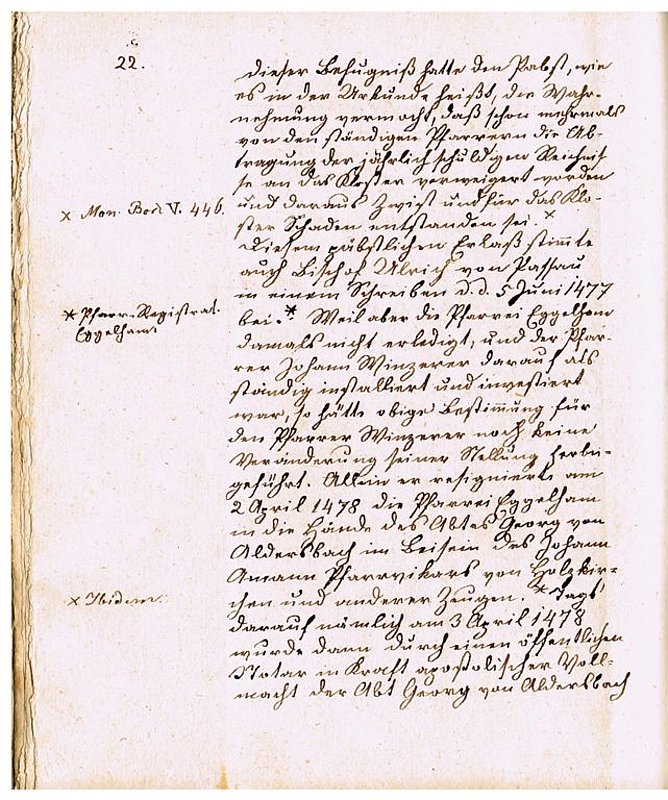 22.
dieser Befugniß hatte den Pabst, wie
es in der Urkunde heißt, die Wahr-
nehmung vermocht, daß schon mehrmals
von den ständigen Pfarrern die Ab-
tragung der jährlich schuldigen Reichniß
se an das Kloster verweigert worden
und daraus Zwist und für das Klo-
ster Schaden entstanden sei. ×
× Mon. Boic V. 446.
Diesem päbstlichen Erlaß stimmte
auch Bischof Ulrich von Passau
in einem Schreiben d. d. 5 Juni 1477
bei. * Weil aber die Pfarrei Eggelham
* Pfarr-Registrat.
Eggelham
damals nicht erledigt, und der Pfar-
rer Johann Winzerer darauf als
ständig installiert und investiert
war, so hätte obige Bestimmung für
den Pfarrer Winzerer noch keine
Veränderung seiner Stellung herbei-
geführt. Allein er resignierte am
2 April 1478 die Pfarrei Eggelham
in die Hände des Abtes Georg von
Aldersbach im Beisein des Johann
Amann Pfarrvikars von Holzkir-
chen und anderer Zeugen. × Tags
× Ibidem.
darauf nämlich am 3 April 1478
wurde dann durch einen öffentlichen
Notar in Kraft apostolischer Voll-
macht der Abt Georg von Aldersbach